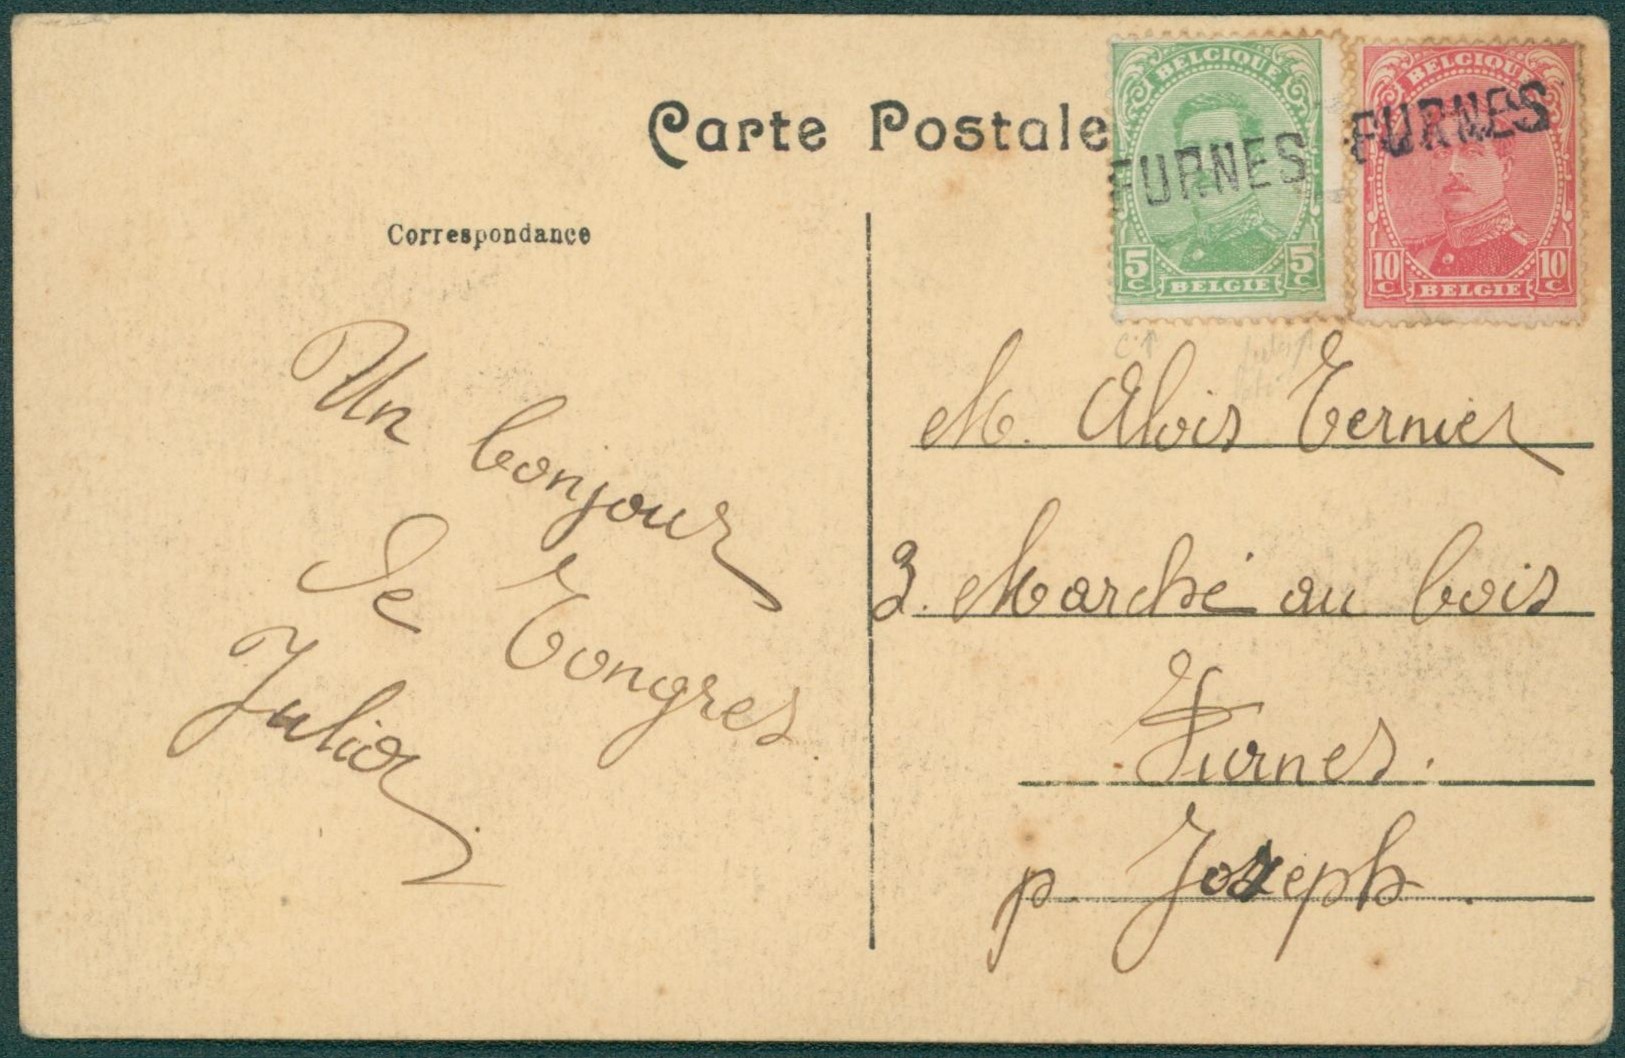 Carte Postale
BELGIQUE
FURNES
5 C
5 C
BELGIE
BELGIQUE
FURNES
10 C
10 C
BELGIE
Correspondance
Un bonjour
de Tongres
M. Aloïs Ternier
3. Marché au bois
Furnes.
p. Joseph.